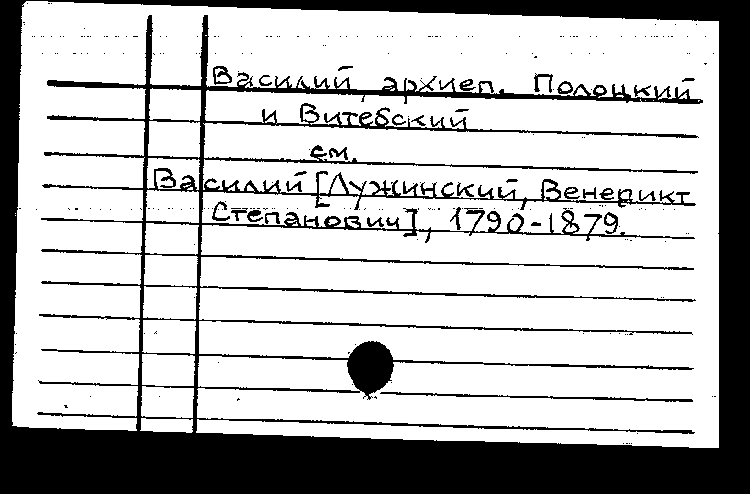 Василий, архиеп. Полоцкий
и Витебский
см.
Василий [Лужинский, Венедикт
Степанович], 1790-1879.